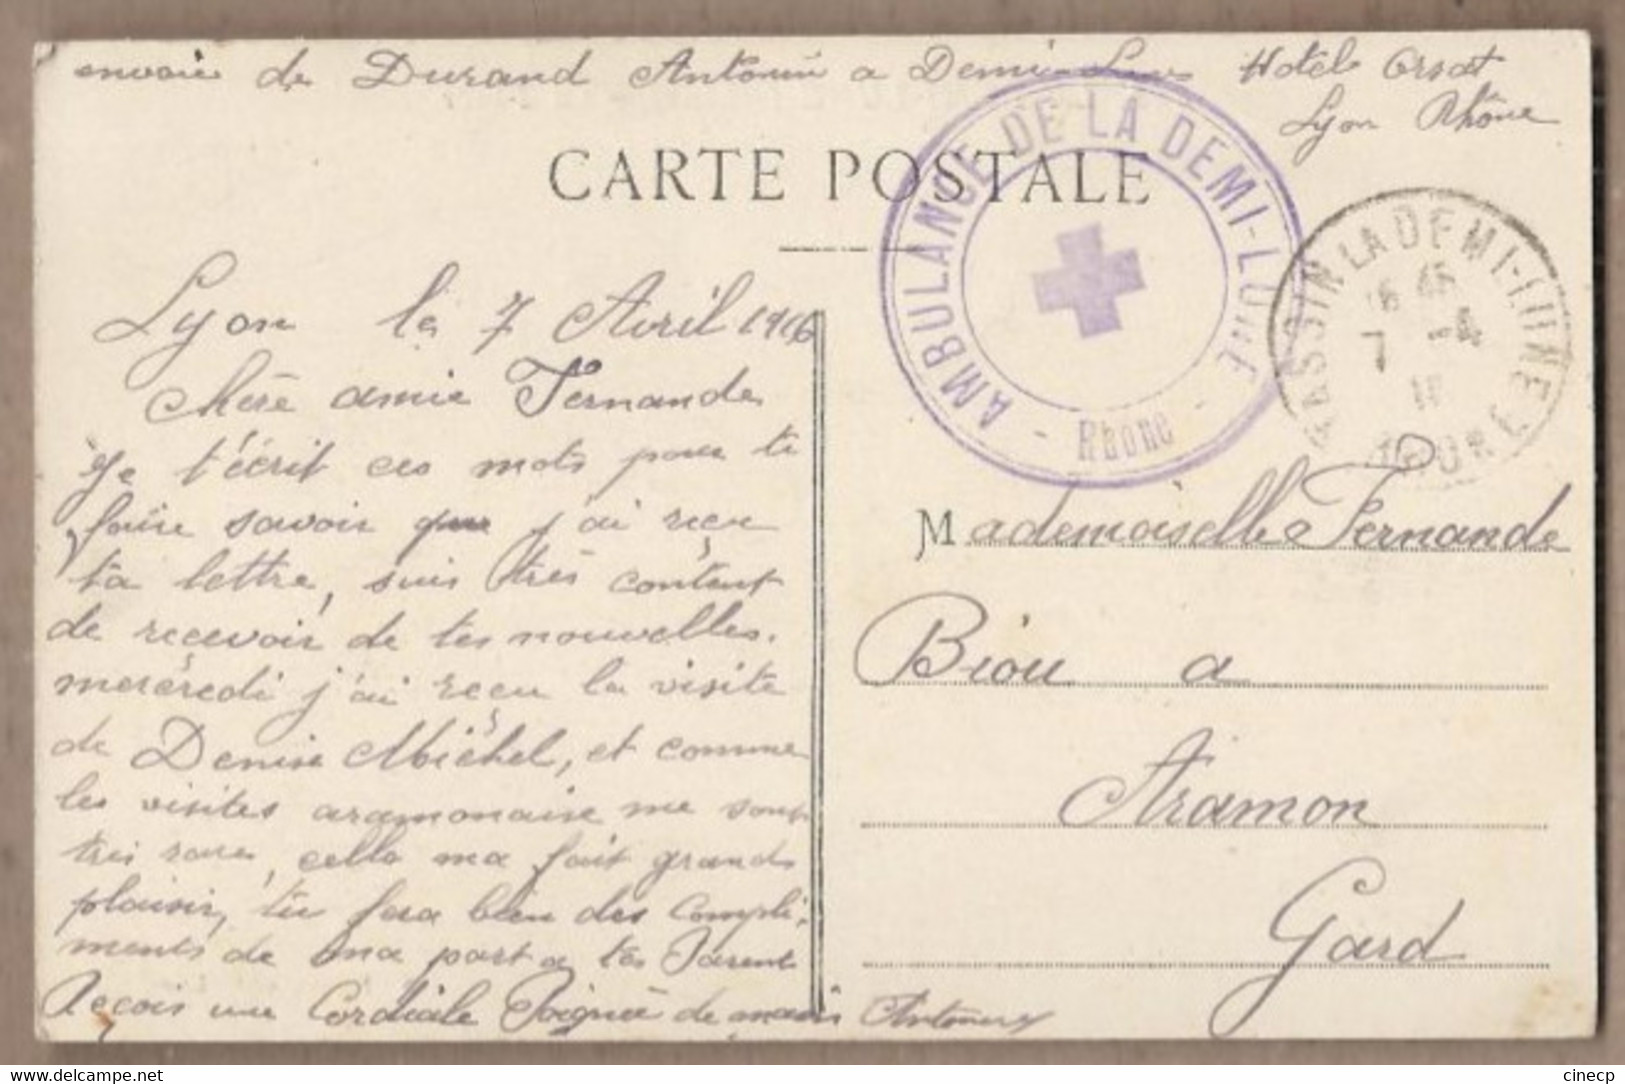 envoie de Durand Antonin a Demi-Lune Hotel Orsat
Lyon Rhône
CARTE POSTALE
- AMBULANCE DE LA DEMI-LUNE -
Rhône
TASSIN LA DEMI-LUNE
7 -4
16
RHONE
Lyon le 7 Avril 1916
chère amie Fernande
Je t'écrit ces mots pour te
faire savoir que j'ai reçu
ta lettre, suis très content
de recevoir de tes nouvelles.
mercredi j'ai reçu la visite
de Denise Michel, et comme
les visites aramonaise me sont
très rare, cella ma fait grand
plaisir, tu fera bien des compli-
ments de ma part a tes Parent
Reçois une Cordiale Poignée de main Antonin
Mademoiselle Fernande
Biou a
Aramon
Gard
www.delcampe.net
cinecp